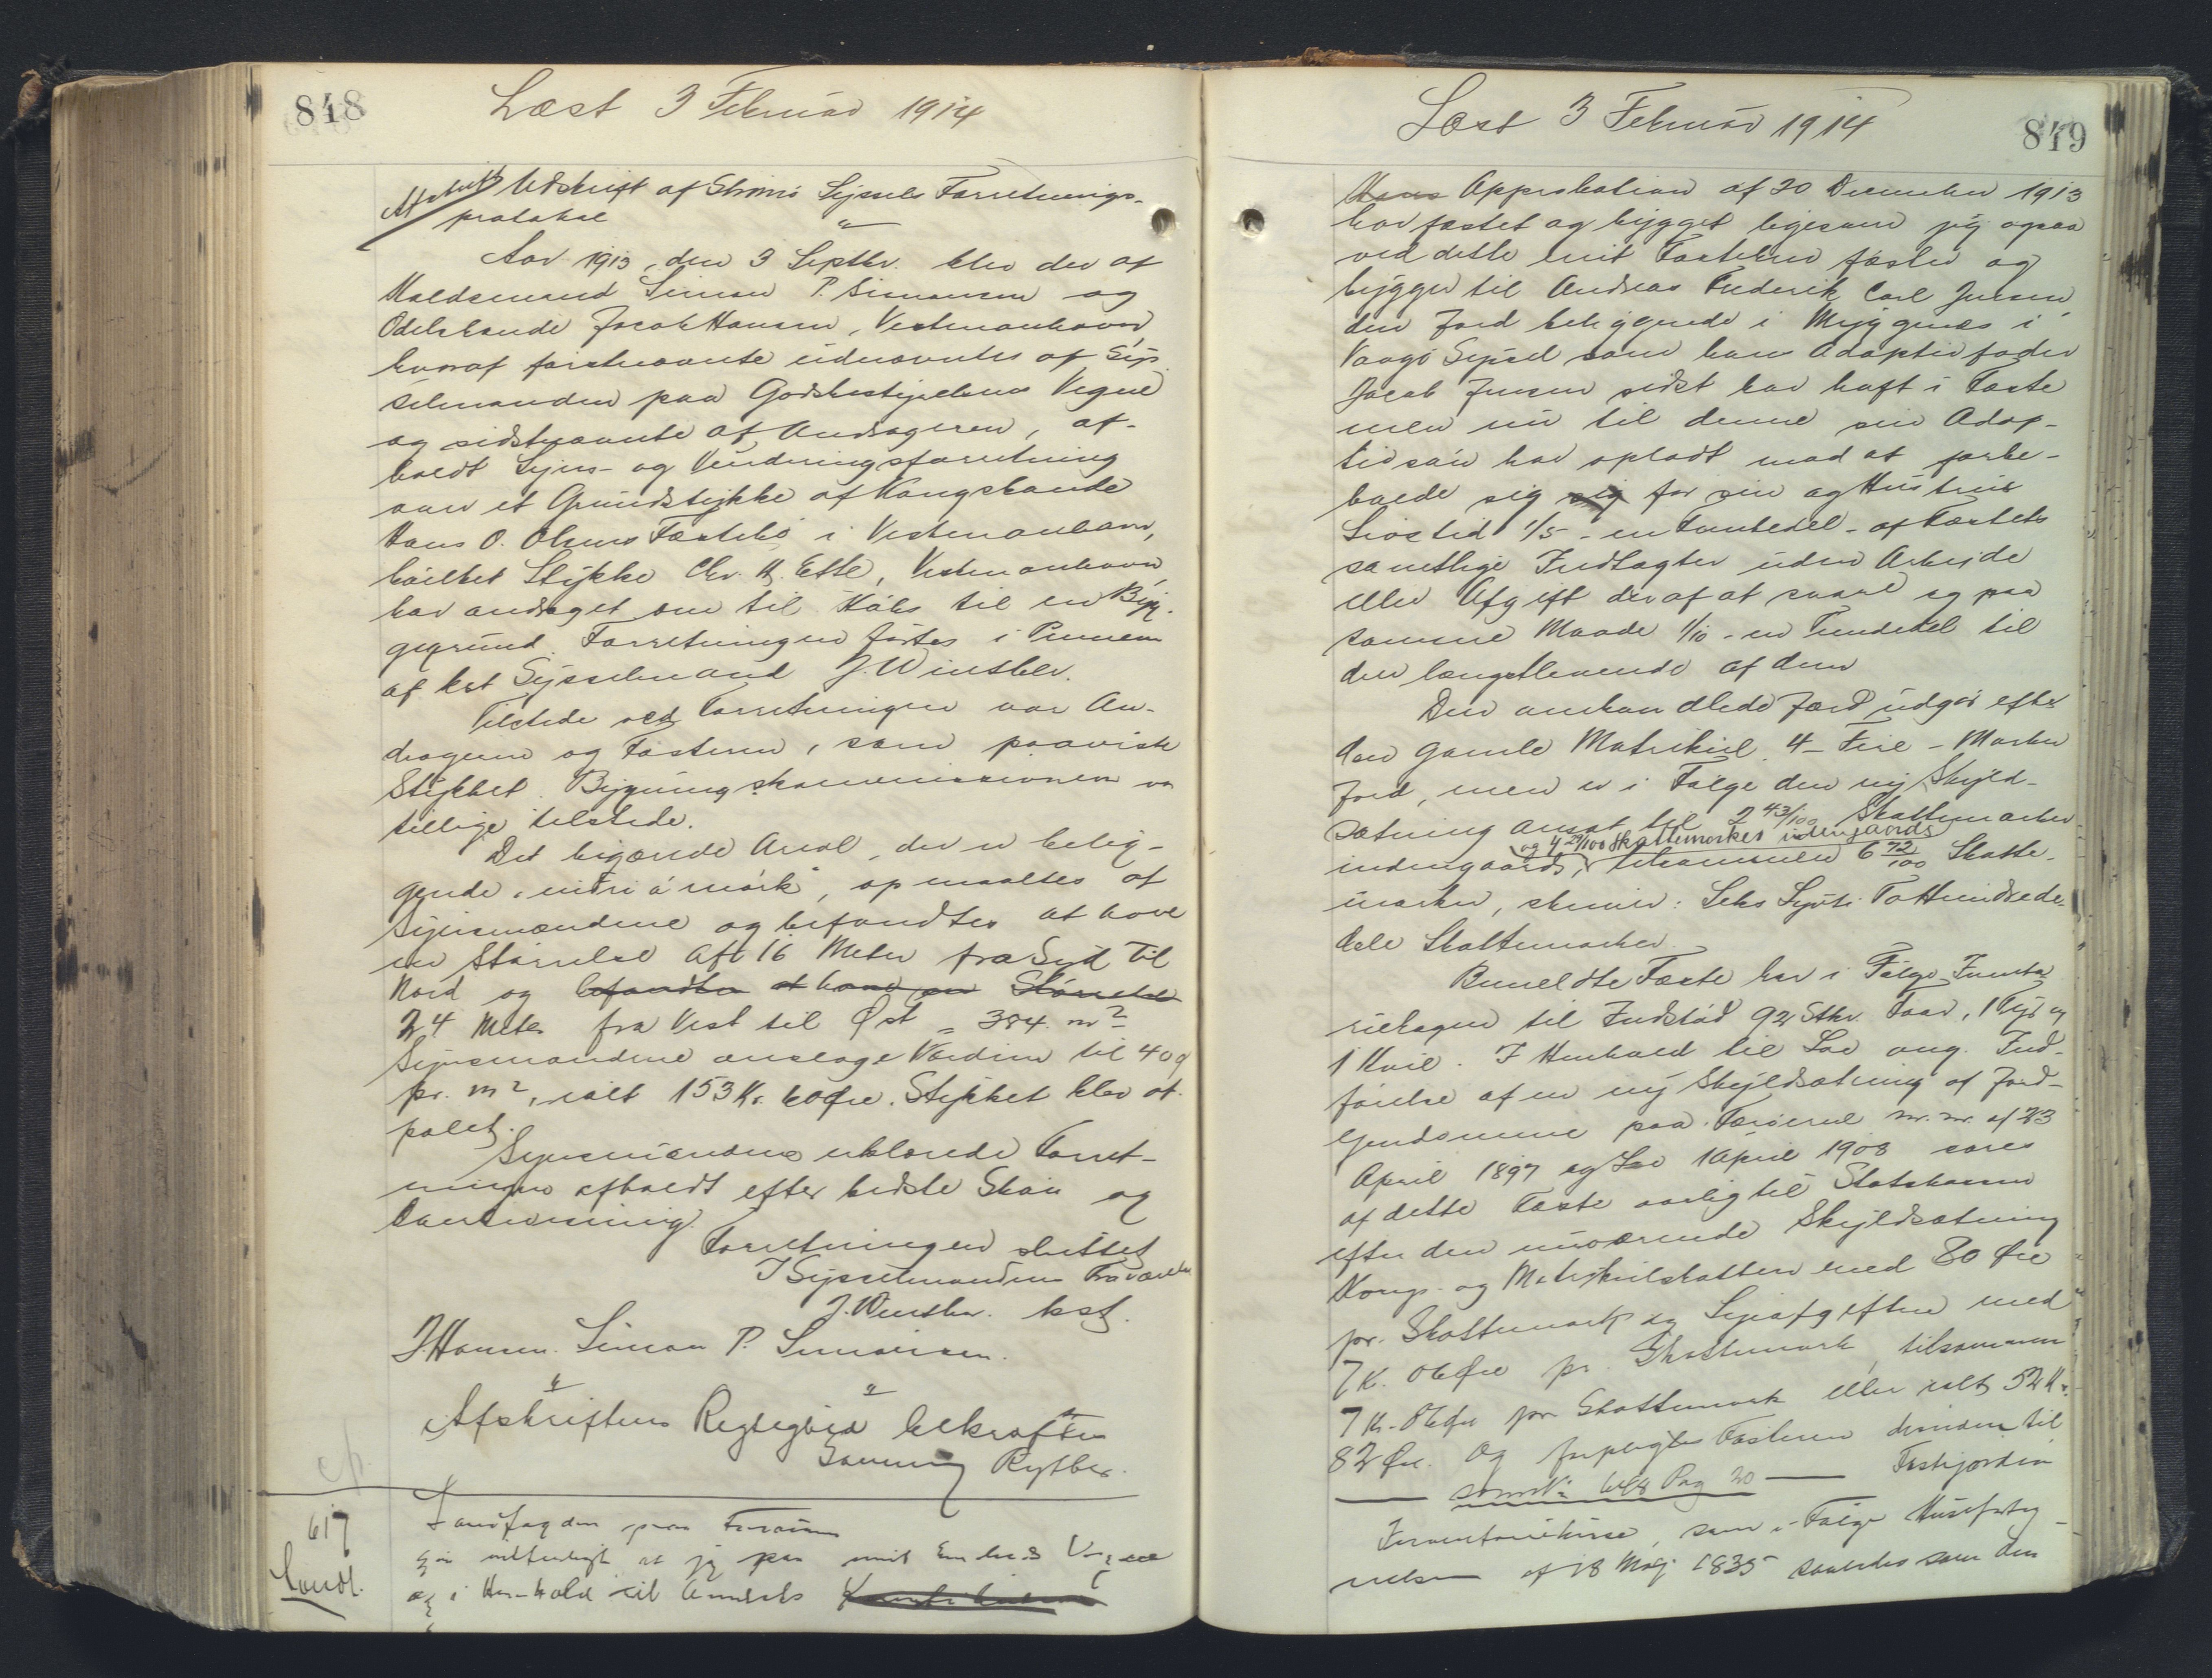 848
Læst 3 Februar 1914
Afskrift Udskrift af Strømø Syssels Forretnings-
protokol
Aar 1913, den 3 Septbr. blev der af
Maldsmand Simon P. Simonsen og
Odelsbonde Jacob Hansen, Vestmanhavn,
hvoraf førstnævnte udnævntes af Sys-
selmanden paa Godsbestyrelsens Vegne
og sidstnævnte af Andrageren, af-
holdt Syns- og Vurderingsforretning
over et Grundstykke af Kongsbonde
Hans O. Olsens Fæstebo i Vestmanhavn,
hvilket Stykke Chr. H. Effe, Vestmanhavn
har andraget om til Købs til en Byg-
gegrund. Forretningen førtes i Pennen
af kst Sysselmand J. Winther.
Tilstede ved Forretningen var An-
drageren og Fæsteren, som paaviste
Stykket. Bygningskommissionen var
tillige tilstede.
Det begærede Areal, der er belig-
gende "niðri á mørk", opmaaltes af
Synsmændene og befandtes at have
en Størrelse af 16 Meter fra Syd til
Nord og befandtes at have en Størrelse
24 Meter fra Vest til Øst = 384 m²
Synsmændene anslage Værdien til 40 Ø
pr. m², ialt 153 Kr. 60 Øre. Stykket blev af-
pælet.
Synsmændene erklærede Forret-
ningen afholdt efter bedste Skøn og
Overbevisning.
Forretningen sluttet
I Sysselmandens Fravær
J. Winther. kst.
J. Hansen. Simon P. Simonsen.
Afskriftens Rigtighed bekræftes
Rytter.
617
Landf.
Landfogden paa Færøerne
Gør vitterligt at jeg paa mit Embeds Vegne
og i Henhold til Amtets
849
Læst 3 Februar 1914
Approbation af 20 December 1913
har fæstet og bygget ligesom jeg ogsaa
ved dette mit Fæstebrev fæster og
bygger til Andreas Frederik Carl Jensen
den Jord beliggende i Myggenæs i
Vaagø Syssel som hans Adoptivfader
Jacob Jensen sidst har haft i Fæste
men nu til denne sin Adop-
tivsøn har opladt mod at forbe-
holde sig sig for sin og Hustrus
Livstid 1/5 - en Femtedel - af Fæstets
samtlige Indtægter uden Arbejde
eller Afgift deraf at svare og paa
samme Maade 1/10 - en Tiendedel til
den længstlevende af dem
Den omhandlede Jord udgør efter
den gamle Matrikul 4 - Fire - Marker
Jord, men er i Følge den ny Skyld-
sætning ansat til 2 43/100 Skattemarker
og 4 29/100 Skattemarker udengaards
indengaards, tilsammen 6 72/100 Skatte-
marker, skriver: Seks Syvti To Hundrede-
dele Skattemarker.
Bemeldte Fæste har i Følge Inventa
rielagen til Indstød 92 Stkr. Faar, 1 Tyr og
1 Kvie. I Henhold til Lov ang. Ind-
førelse af en ny Skyldsætning af Jord-
ejendomme paa Færøerne m. m. af 23
April 1897 og Lov 1 April 1908 svares
af dette Fæste aarlig til Statskassen
efter den nuværende Skyldsætning
Konge- og Matrikulskatten med 80 Øre
pr. Skattemark og Lejeafgiften med
7 K. 06 Øre pr. Skattemark, tilsammen
7 Kr. 86 Øre pr Skattemark eller ialt 52 Kr.
82 Øre. Og forpligtes Fæsteren desuden til
som Nº 648 Pag 20 Festejorden
, som i Følge
af 18 Maj 1835 saaledes som den